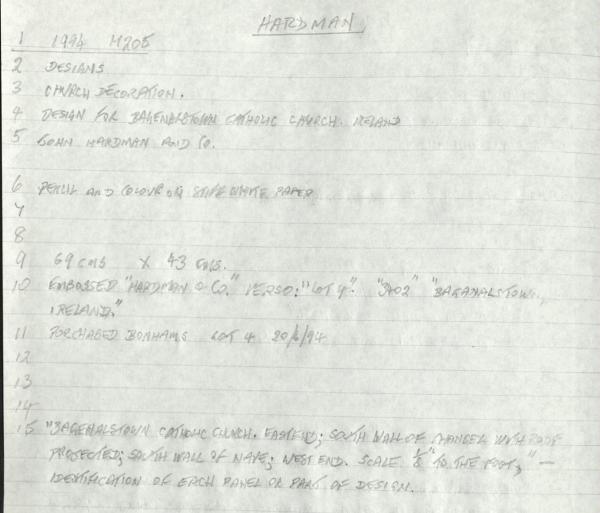 HARDMAN
1 1994 M205
2 DESIGNS
3 CHURCH DECORATION.
4 DESIGN FOR BAGENALSTOWN CATHOLIC CHURCH. IRELAND
5 JOHN HARDMAN AND CO.
6 PENCIL AND COLOUR ON STIFF WHITE PAPER
7
8
9 69 CMS X 43 CMS.
10 EMBOSSED "HARDMAN & CO." VERSO: "LOT 4". "3402" "BAGANALSTOWN,
IRELAND."
11 PURCHASED BONHAMS LOT 4 20/6/94
12
13
14
15 "BAGENALSTOWN CATHOLIC CHURCH. EAST END; SOUTH WALL OF CHANCEL WITH ROOF
PROJECTED; SOUTH WALL OF NAVE; WEST END. SCALE 1/8" TO THE FOOT," –
IDENTIFICATION OF EACH PANEL OR PART OF DESIGN.